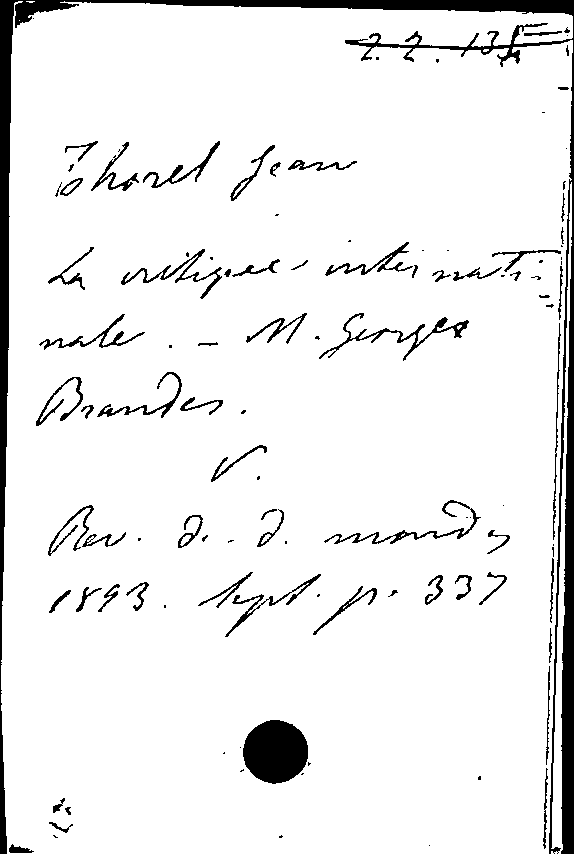 Thorel Jean
La critique internati-
nale. - M. Georges
Brandes.
V.
Rev. d. d. mondes
1893. Sept. p. 337